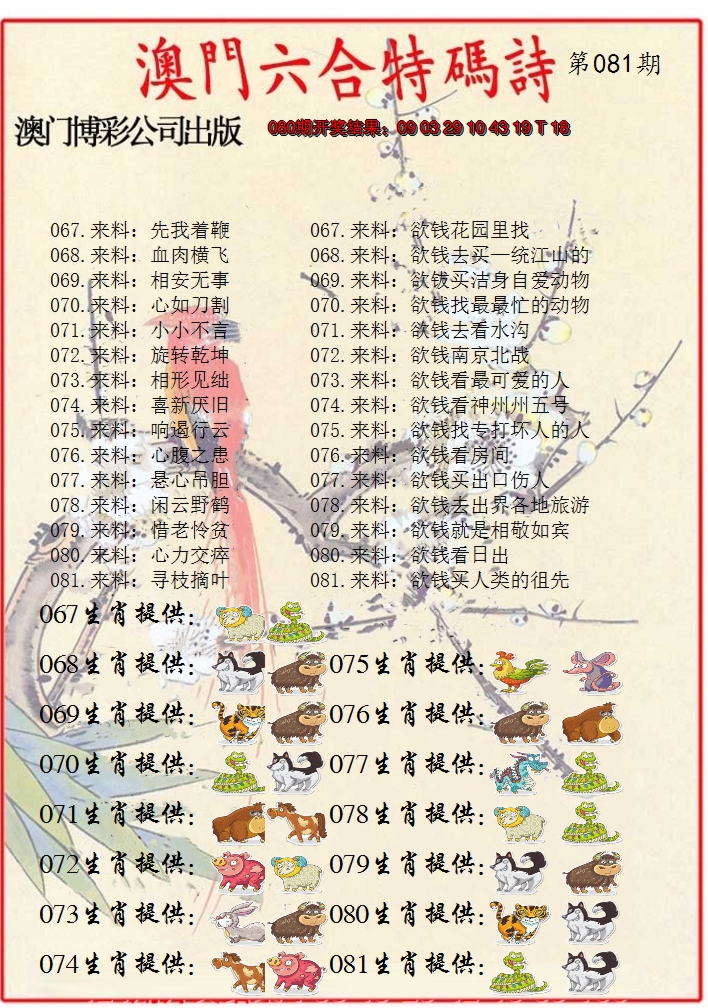 澳門六合特碼詩 第081期
澳门博彩公司出版 080期开奖结果：09 03 29 10 43 19 T 18
067.来料：先我着鞭 067.来料：欲钱花园里找
068.来料：血肉横飞 068.来料：欲钱去买一统江山的
069.来料：相安无事 069.来料：欲钱买洁身自爱动物
070.来料：心如刀割 070.来料：欲钱找最最忙的动物
071.来料：小小不言 071.来料：欲钱去看水沟
072.来料：旋转乾坤 072.来料：欲钱南京北战
073.来料：相形见绌 073.来料：欲钱看最可爱的人
074.来料：喜新厌旧 074.来料：欲钱看神州州五号
075.来料：响遏行云 075.来料：欲钱找专打坏人的人
076.来料：心腹之患 076.来料：欲钱看房间
077.来料：悬心吊胆 077.来料：欲钱买出口伤人
078.来料：闲云野鹤 078.来料：欲钱去出界各地旅游
079.来料：惜老怜贫 079.来料：欲钱就是相敬如宾
080.来料：心力交瘁 080.来料：欲钱看日出
081.来料：寻枝摘叶 081.来料：欲钱买人类的祖先
067生肖提供：
068生肖提供： 075生肖提供：
069生肖提供： 076生肖提供：
070生肖提供： 077生肖提供：
071生肖提供： 078生肖提供：
072生肖提供： 079生肖提供：
073生肖提供： 080生肖提供：
074生肖提供： 081生肖提供：